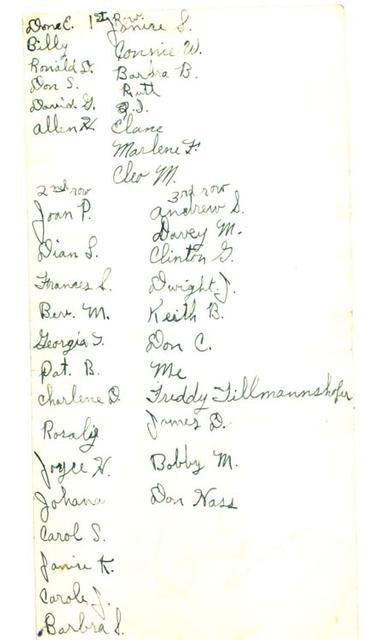 1st Row
Done E.
Billy
Ronald D.
Don S.
David G.
Allen H.
Janice S.
Connie W.
Barbra B.
Ruth
B.J.
Elane
Marlene F.
Cleo M.
2nd row
Joan P.
Dian L.
Frances S.
Bev. M.
Georgia T.
Pat. B.
Charlene D
Rosaly
Joyce H.
Johana
Carol S.
Janice K.
Carole J.
Barbra S.
3rd row
Andrew S.
Davey M.
Clinton G.
Dwight J.
Keith B.
Don C.
Me
Freddy Tillmannshofer
James D.
Bobby M.
Don Nass